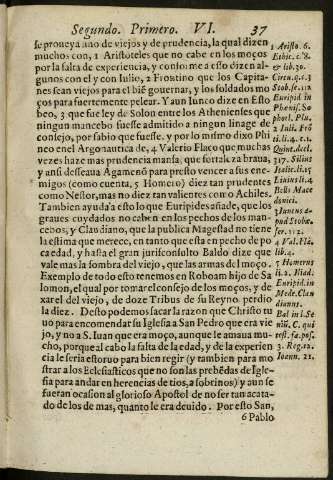 Segundo. Primero. VI. 37
se proueya uno de viejos y de prudencia, la qual dizen
muchos con, 1 Aristoteles que no cabe en los moços
por la falta de experiencia, y conforme a esto dizen al-
gunos con el y con Iulio, 2 Frontino que los Capita-
nes sean viejos para el biē gouernar, y los soldados mo
ços para fuertemente pelear. Y aun Iunco dize en Esto
beo, 3 que fue ley de Solon entre los Athenienses que
ningun mancebo fuesse admitido a ningun linage de
consejo, por sabio que fuesse. y por lo mismo dixo Phi
neo en el Argonautica de, 4 Valerio Flaco que muchas
vezes haze mas prudencia mansa, que fortaleza braua,
y ansi desseaua Agamenō para presto vencer a sus ene-
migos (como cuenta, 5 Homero) diez tan prudentes
como Nestor, mas no diez tan valientes como Achiles.
Tambien ayuda à esto lo que Euripides añade, que los
graues cuydados no caben en los pechos de los man-
cebos, y Claudiano, que la publica Magestad no tiene
la estima que merece, en tanto que esta en pecho de po
ca edad, y hasta el gran jurisconsulto Baldo dize que
vale mas la sombra del viejo, que las armas del moço.
Exemplo de todo esto tenemos en Roboam hijo de Sa
lomon, el qual por tomar el consejo de los moços, y de
xar el del viejo, de doze Tribus de su Reyno perdio
la diez. Desto podemos sacar la razon que Christo tu
uo para encomendar su Iglesia a San Pedro que era vie
jo, y no a S. Iuan que era moço, aunque le amaua mu-
cho, porque al cabo la falta de la edad, y de la experien
cia le seria estoruo para bien regir (y tambien para mo
strar a los Eclesiasticos que no son las prebēdas de Igle-
sia para andar en herencias de tios, a sobrinos) y aun se
fueran ocasion al glorioso Apostol de no ser tan acata-
do de los de mas, quanto le era deuido. Por esto San,
6 Pablo
1 Aristo. 6.
Ethic. c. 8.
& lib. 30.
Circu. q. 1. 3
Stob. se. 112
Euripid in
Phenis. So
phocl. Plu.
2 Iuli. Frō
ti. li. 4. c. 1.
Quint. decl.
317. Silius
Italic. li. 15
Liuius li. 4
Bells Mace
donici.
3 Iuncus a-
pud Stobæ.
ser. 112.
4 Val. Flá.
lib. 4.
5 Homerus
li. 2. Iliad.
Euripid. in
Mede. Clau
dianus.
Bal in l. Se
niū. C. qui
test. fa. pos.
3. Reg. 12.
Ioann. 21.